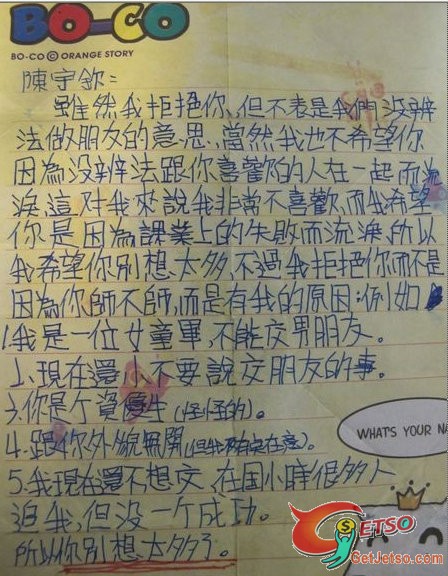 BO-CO
BO-CO © ORANGE STORY
陳宇欽：
雖然我拒絕你,但不表是我們没辨
法做朋友的意思,當然我也不希望你
因為没辨法跟你喜歡的人在一起而流
淚,這対我來說我非常不喜歡,而我希望
你是因為課業上的失敗而流淚,所以
我希望你別想太多,不過我拒絕你而不是
因為你師不師,而是有我的原因:例如
1.我是一位女童軍,不能交男朋友。
2、現在還小不要說交朋友的事。
3.你是个資優生(怪怪的)。
4.跟你外貌無關(但我在意)。
5.我現在還不想交,在国小時很多人
追我,但没一个成功。
所以你別想太多了。
WHAT'S YOUR NA
GETSO
GetJetso.com